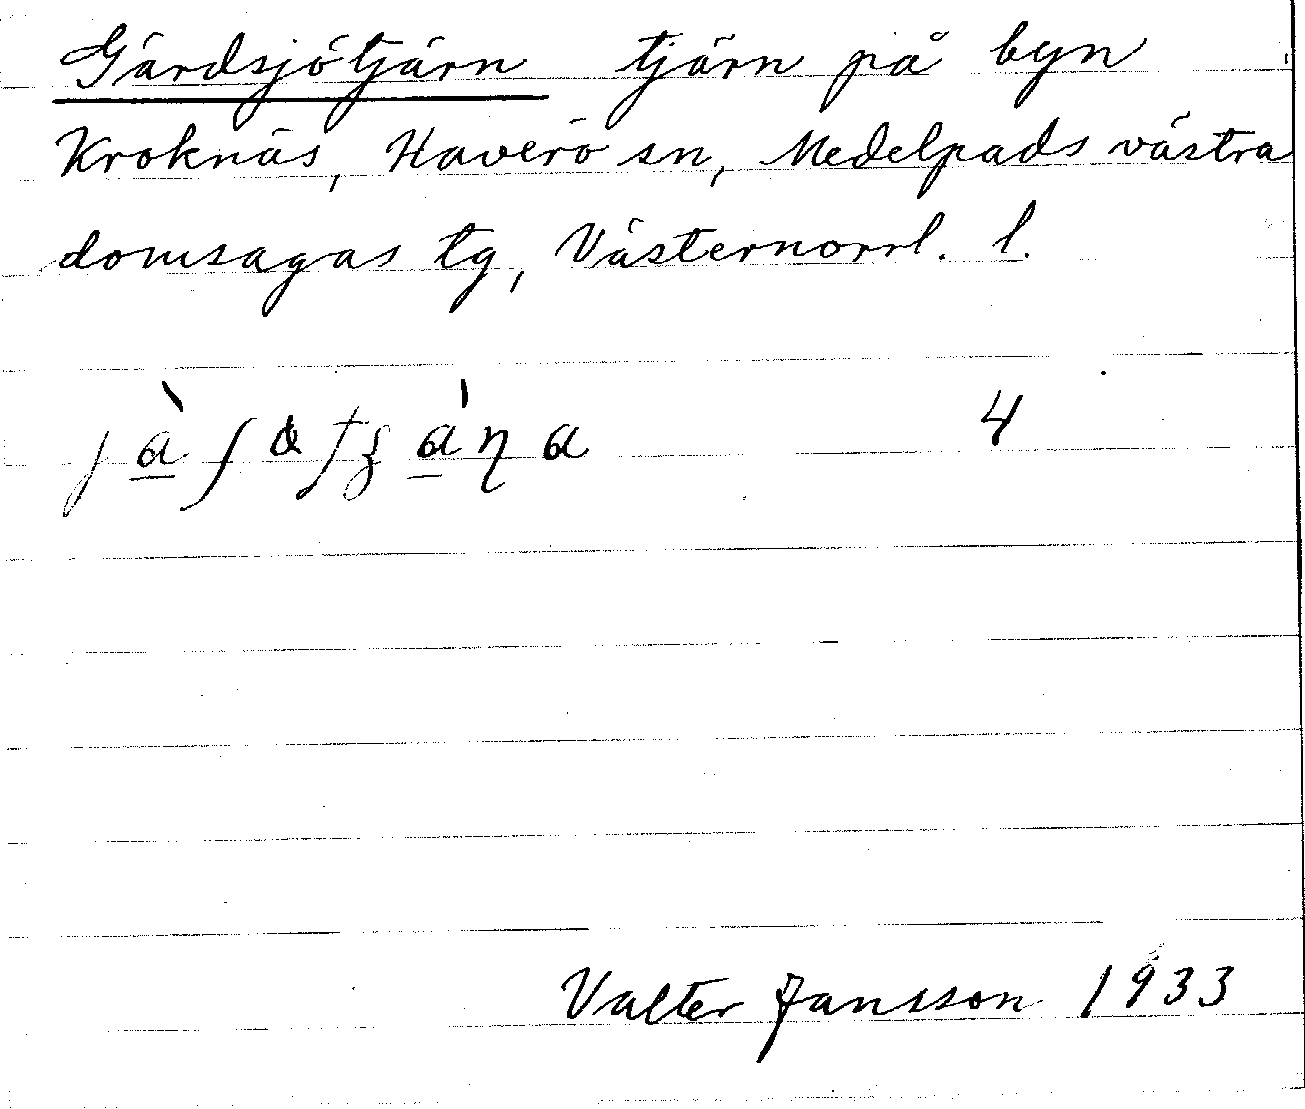 Gärdsjötjärn tjärn på byn
Kroknäs, Haverö sn, Medelpads västra
domsagas tg, Västernorrl. l.
4
Valter Jansson 1933